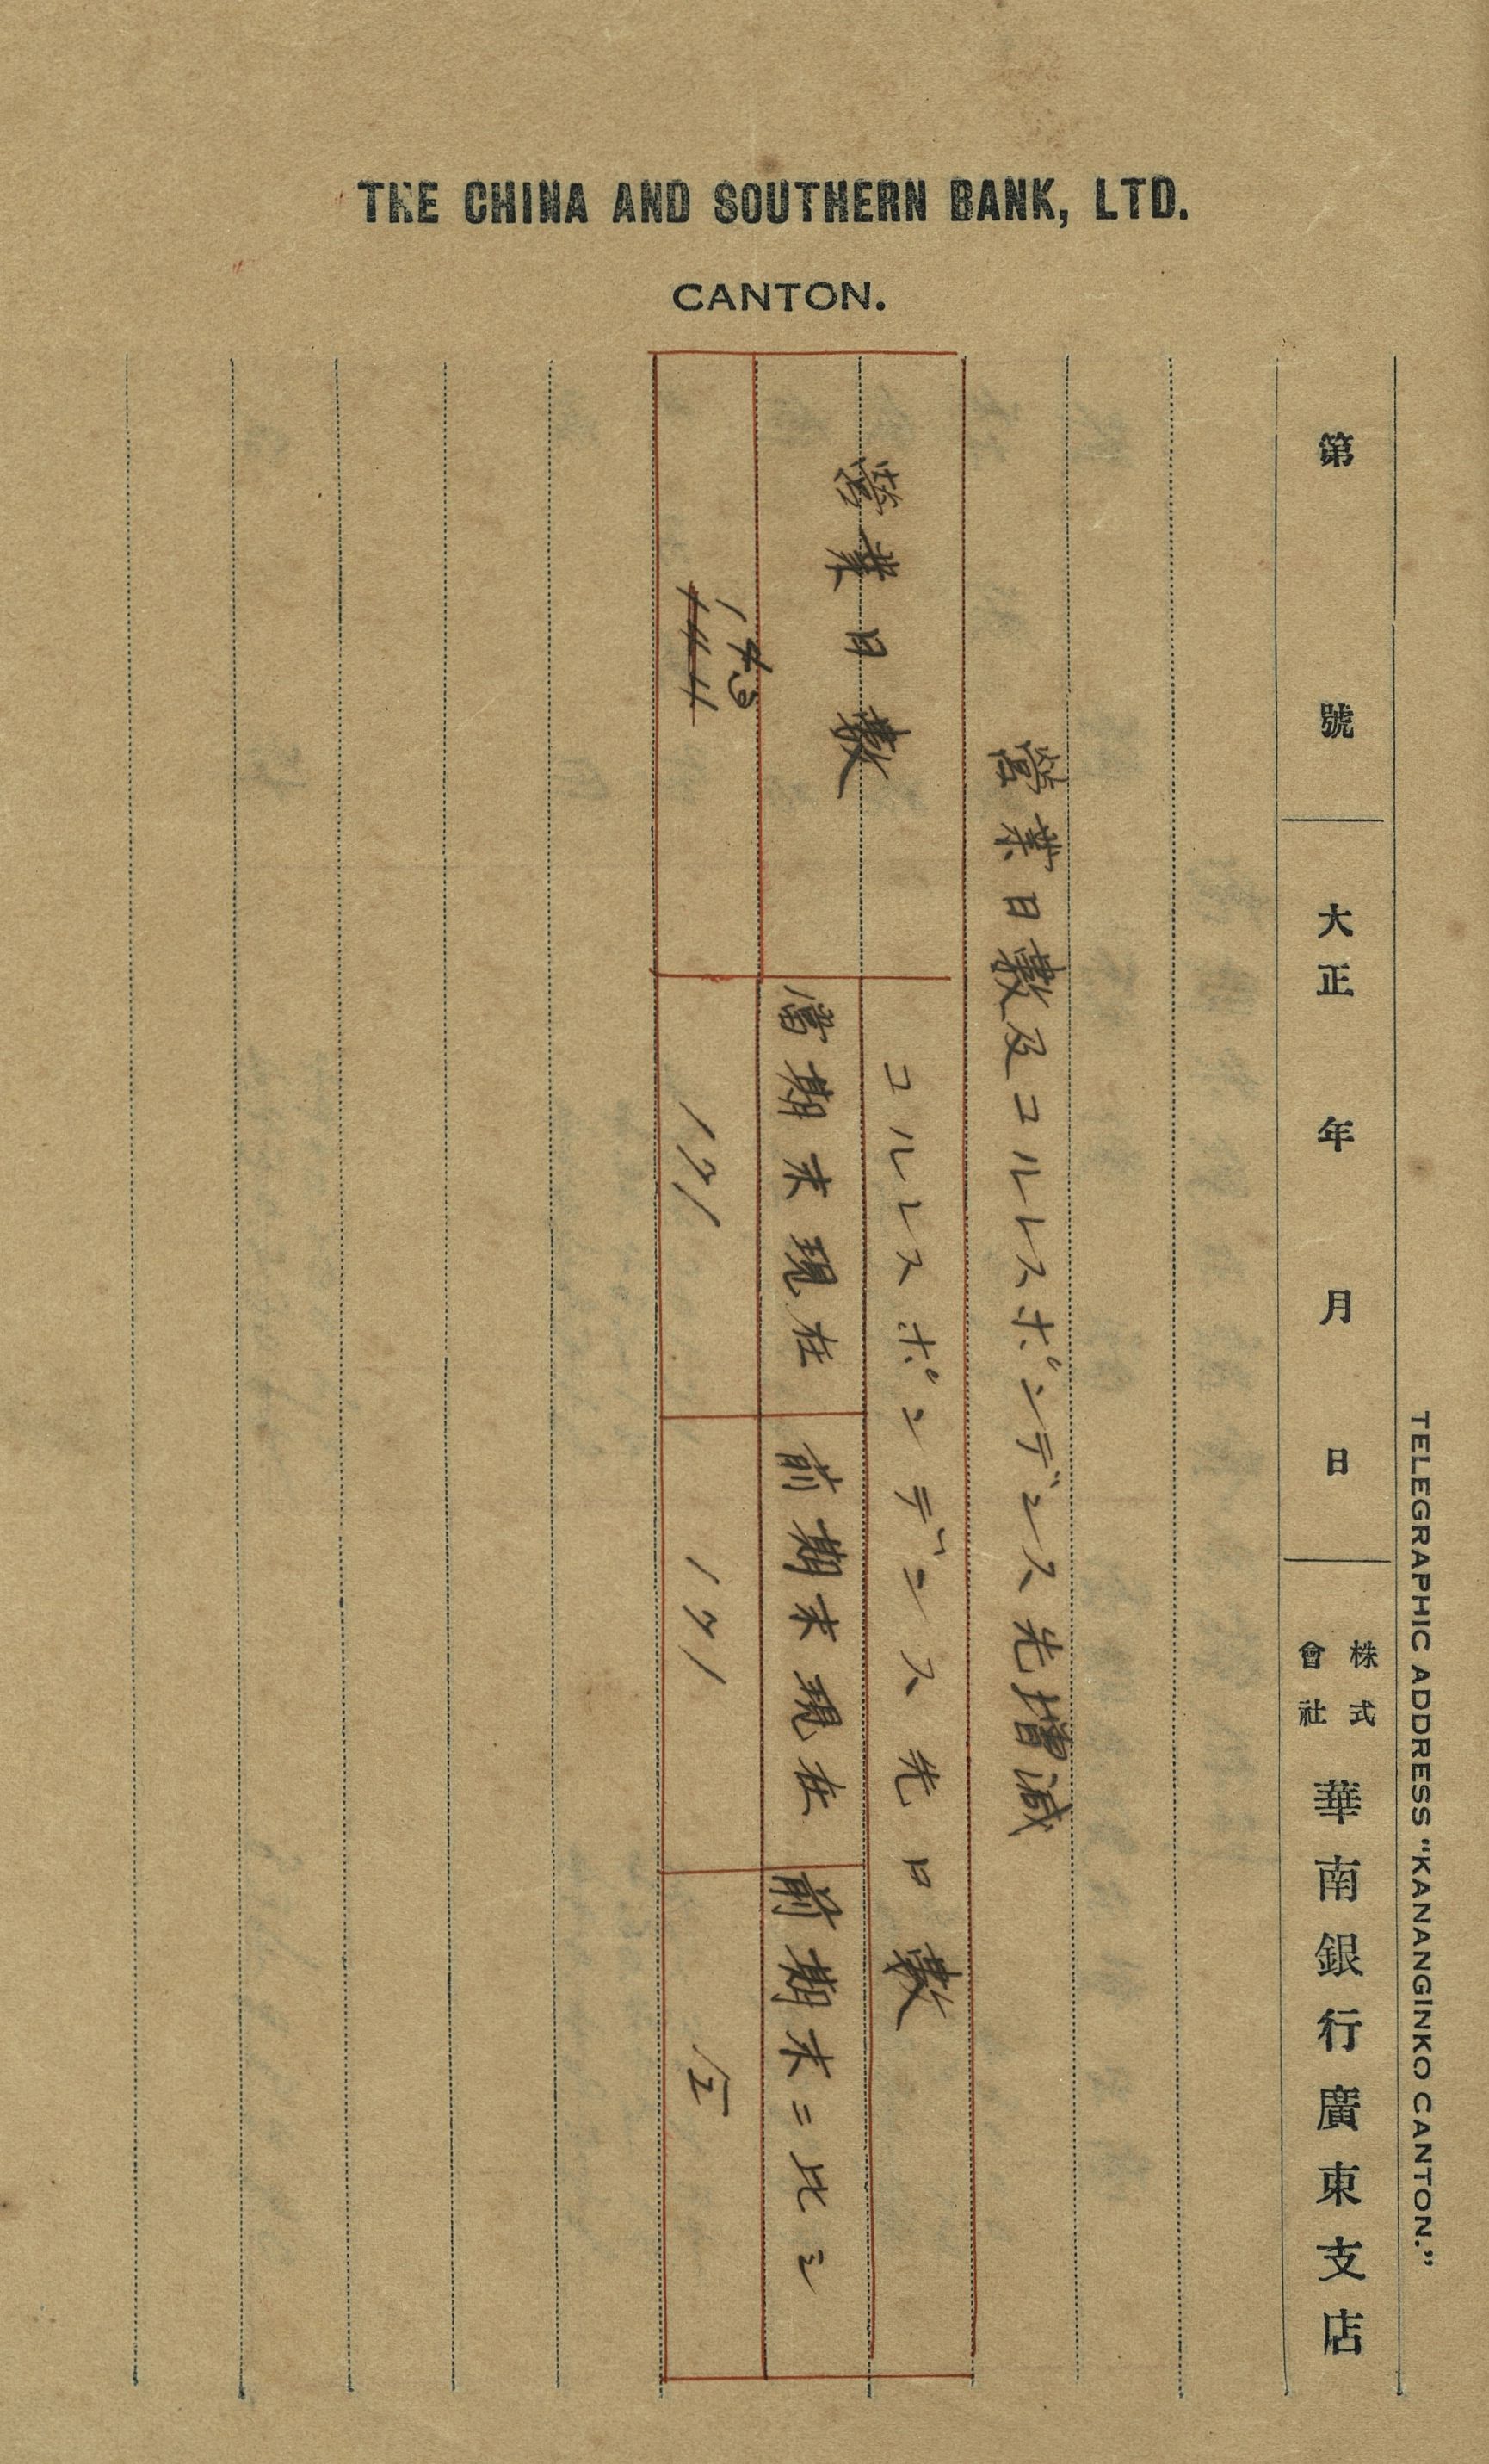 THE CHINA AND SOUTHERN BANK, LTD.
CANTON.
TELEGRAPHIC ADDRESS "KANANGINKO CANTON."
第 號 大正 年 月 日 株式會社 華南銀行廣東支店
營業日數及コルレスポンデンス先增減
營業日數
コルレスポンデンス先口數
當期末現在
前期末現在
前期末ニ比シ
143
144
171
171